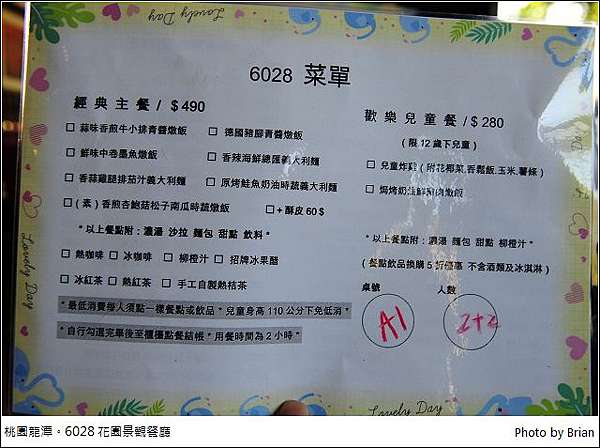 Lovely Day
6028 菜單
經典主餐 / $490
□ 蒜味香煎牛小排青醬燉飯
□ 德國豬腳青醬燉飯
□ 鮮味中卷墨魚燉飯
□ 香辣海鮮總匯義大利麵
□ 香蒜雞腿排茄汁義大利麵
□ 原烤鮭魚奶油時蔬義大利麵
□ (素) 香煎杏鮑菇松子南瓜時蔬燉飯
□ + 酥皮 60 $
* 以上餐點附: 濃湯 沙拉 麵包 甜點 飲料 *
□ 熱咖啡 □ 冰咖啡 □ 柳橙汁 □ 招牌冰果醋
□ 冰紅茶 □ 熱紅茶 □ 手工自製熱桔茶
* 最低消費每人須點一樣餐點或飲品 * 兒童身高 110 公分下免低消 *
* 自行勾選完畢後至櫃檯點餐結帳 * 用餐時間為 2 小時 *
歡樂兒童餐 / $280
(限 12 歲下兒童)
□ 兒童炸雞 (附花椰菜.杏鮑菇.玉米.薯條)
□ 焗烤奶油鮮蔬雞肉燉飯
* 以上餐點附: 濃湯 麵包 甜點 柳橙汁 *
(餐點飲品換購 5 折優惠 不含酒類及冰淇淋)
桌號 人數
A1 2+2
Lovely Day
Lovely Day
桃園龍潭。6028 花園景觀餐廳
Photo by Brian